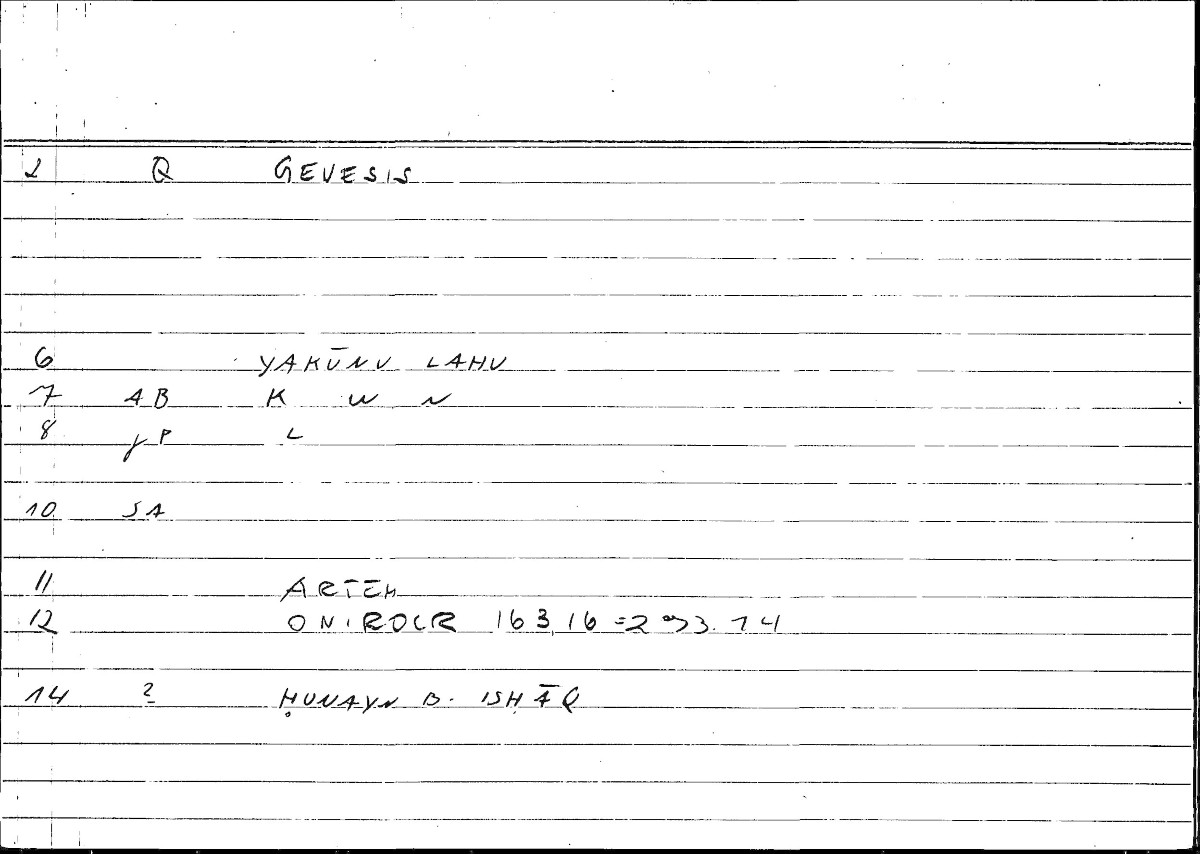 2 Q GEVESIS
6 YAKŪNU LAHU
7 AB K W N
8 γP L
10 SA
11 ARTEM
12 ONIROCR 163,16 = 293.14
14 ? ḤUNAYN B. ISḤĀQ